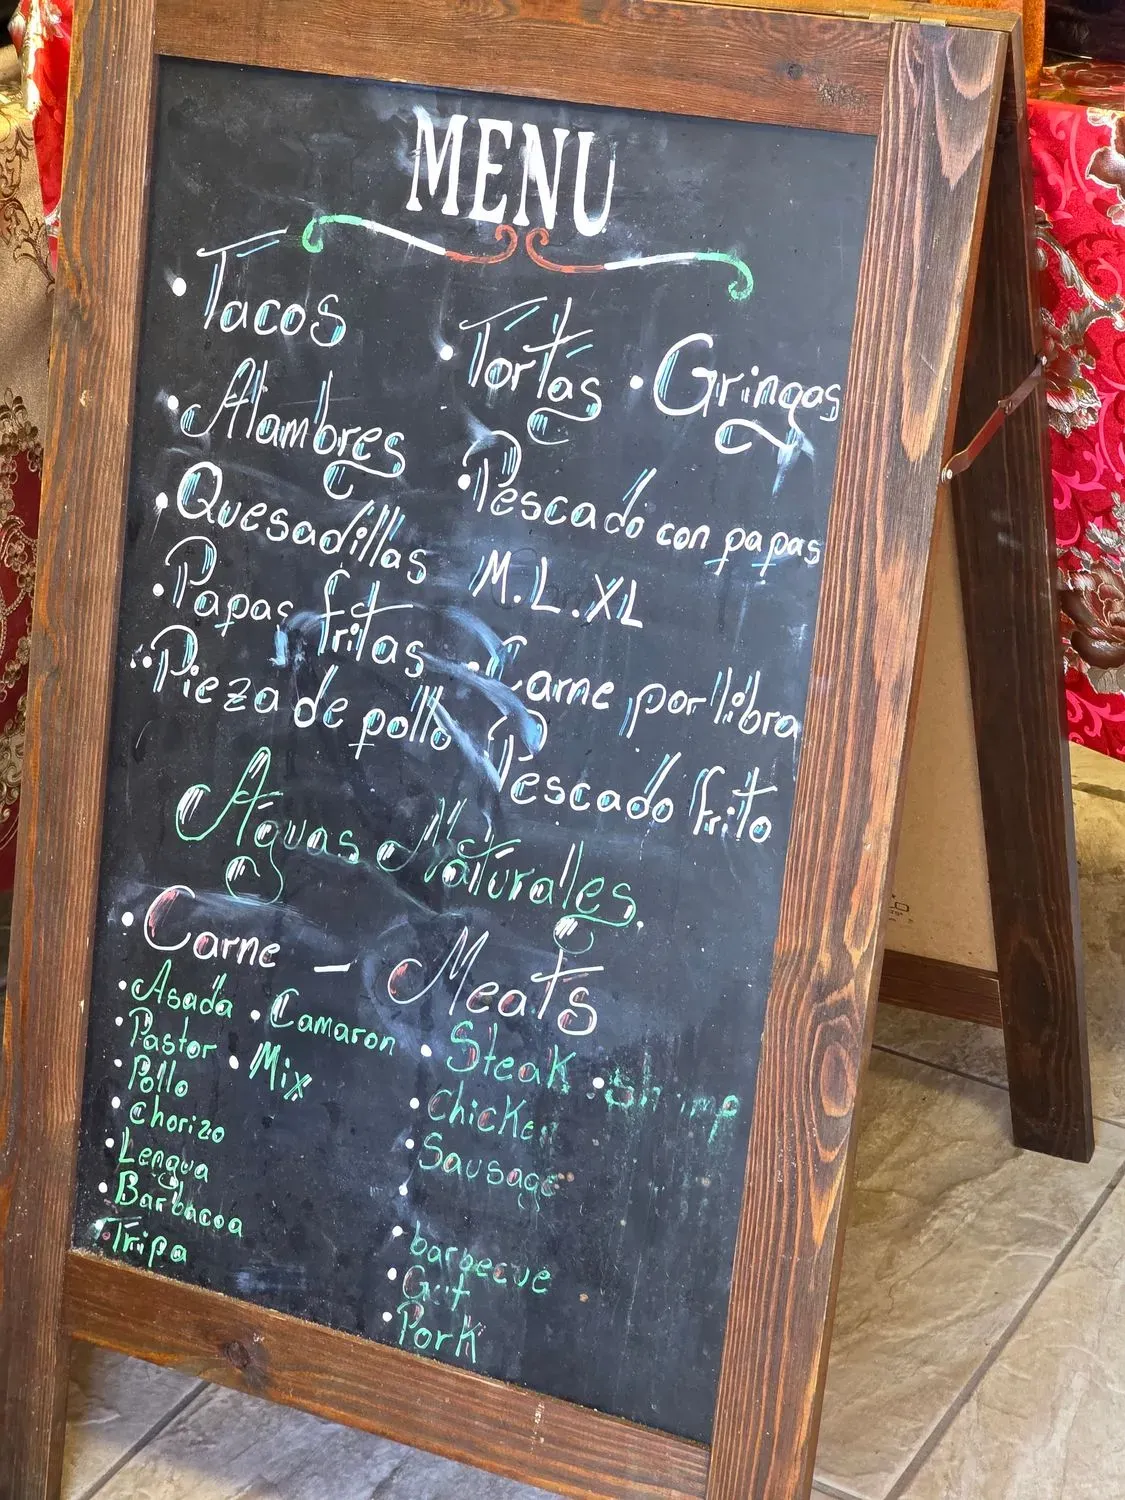 MENU
• Tacos
• Tortas
• Gringas
• Alambres
• Pescado con papas
• Quesadillas
M.L.XL
• Papas fritas
• Carne por libra
• Pieza de pollo
Pescado frito
Aguas Naturales
• Carne - Meats
• Asada
• Camaron
• Pastor
• Mix
• Pollo
• Chorizo
• Lengua
• Barbacoa
• Tripa
• Steak
• Shrimp
• Chicken
• Sausage
•
• barbecue
•
• Pork